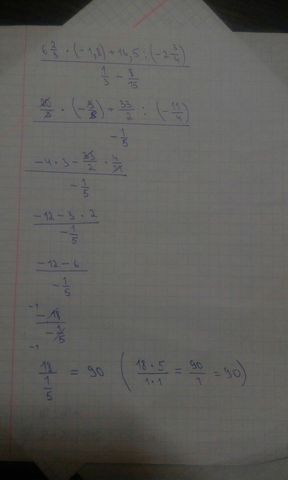 6 2/3 · (-1,8) + 16,5 : (-2 3/4)
1/3 - 8/15
20/3 · (-9/5) + 33/2 : (-11/4)
- 1/5
-4 · 3 - 33/2 · 4/11
- 1/5
-12 - 3 · 2
- 1/5
-12 - 6
- 1/5
-1
-18
- 1/5
-1
18
1/5 = 90 (18 · 5/1 · 1 = 90/1 = 90)